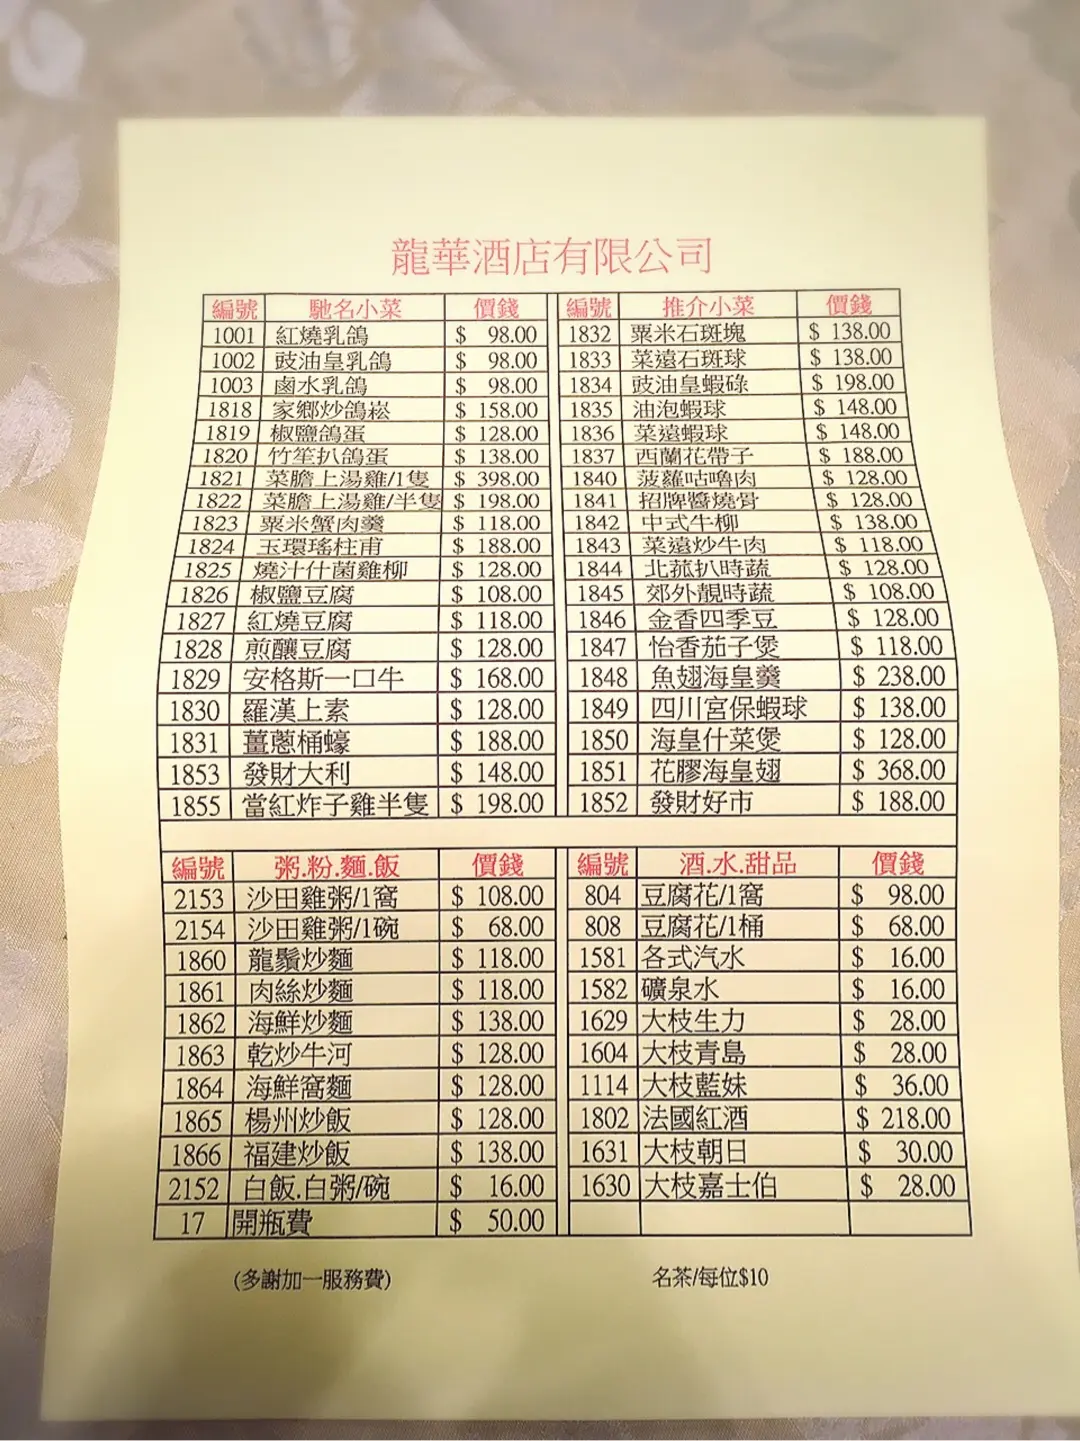 龍華酒店有限公司
編號 馳名小菜 價錢 編號 推介小菜 價錢
1001 紅燒乳鴿 $ 98.00 1832 粟米石斑塊 $ 138.00
1002 豉油皇乳鴿 $ 98.00 1833 菜遠石斑球 $ 138.00
1003 鹵水乳鴿 $ 98.00 1834 豉油皇蝦碌 $ 198.00
1818 家鄉炒鴿崧 $ 158.00 1835 油泡蝦球 $ 148.00
1819 椒鹽鴿蛋 $ 128.00 1836 菜遠蝦球 $ 148.00
1820 竹笙扒鴿蛋 $ 138.00 1837 西蘭花帶子 $ 188.00
1821 菜膽上湯雞/1隻 $ 398.00 1840 菠蘿咕嚕肉 $ 128.00
1822 菜膽上湯雞/半隻 $ 198.00 1841 招牌醬燒骨 $ 128.00
1823 粟米蟹肉羹 $ 118.00 1842 中式牛柳 $ 138.00
1824 玉環瑤柱甫 $ 188.00 1843 菜遠炒牛肉 $ 118.00
1825 燒汁什菌雞柳 $ 128.00 1844 北菰扒時蔬 $ 128.00
1826 椒鹽豆腐 $ 108.00 1845 郊外靚時蔬 $ 108.00
1827 紅燒豆腐 $ 118.00 1846 金香四季豆 $ 128.00
1828 煎釀豆腐 $ 128.00 1847 怡香茄子煲 $ 118.00
1829 安格斯一口牛 $ 168.00 1848 魚翅海皇羹 $ 238.00
1830 羅漢上素 $ 128.00 1849 四川宮保蝦球 $ 138.00
1831 薑蔥桶蠔 $ 188.00 1850 海皇什菜煲 $ 128.00
1853 發財大利 $ 148.00 1851 花膠海皇翅 $ 368.00
1855 當紅炸子雞半隻 $ 198.00 1852 發財好市 $ 188.00
編號 粥.粉.麵.飯 價錢 編號 酒.水.甜品 價錢
2153 沙田雞粥/1窩 $ 108.00 804 豆腐花/1窩 $ 98.00
2154 沙田雞粥/1碗 $ 68.00 808 豆腐花/1桶 $ 68.00
1860 龍鬚炒麵 $ 118.00 1581 各式汽水 $ 16.00
1861 肉絲炒麵 $ 118.00 1582 礦泉水 $ 16.00
1862 海鮮炒麵 $ 138.00 1629 大枝生力 $ 28.00
1863 乾炒牛河 $ 128.00 1604 大枝青島 $ 28.00
1864 海鮮窩麵 $ 128.00 1114 大枝藍妹 $ 36.00
1865 楊州炒飯 $ 128.00 1802 法國紅酒 $ 218.00
1866 福建炒飯 $ 138.00 1631 大枝朝日 $ 30.00
2152 白飯.白粥/碗 $ 16.00 1630 大枝嘉士伯 $ 28.00
17 開瓶費 $ 50.00
(多謝加一服務費) 名茶/每位$10